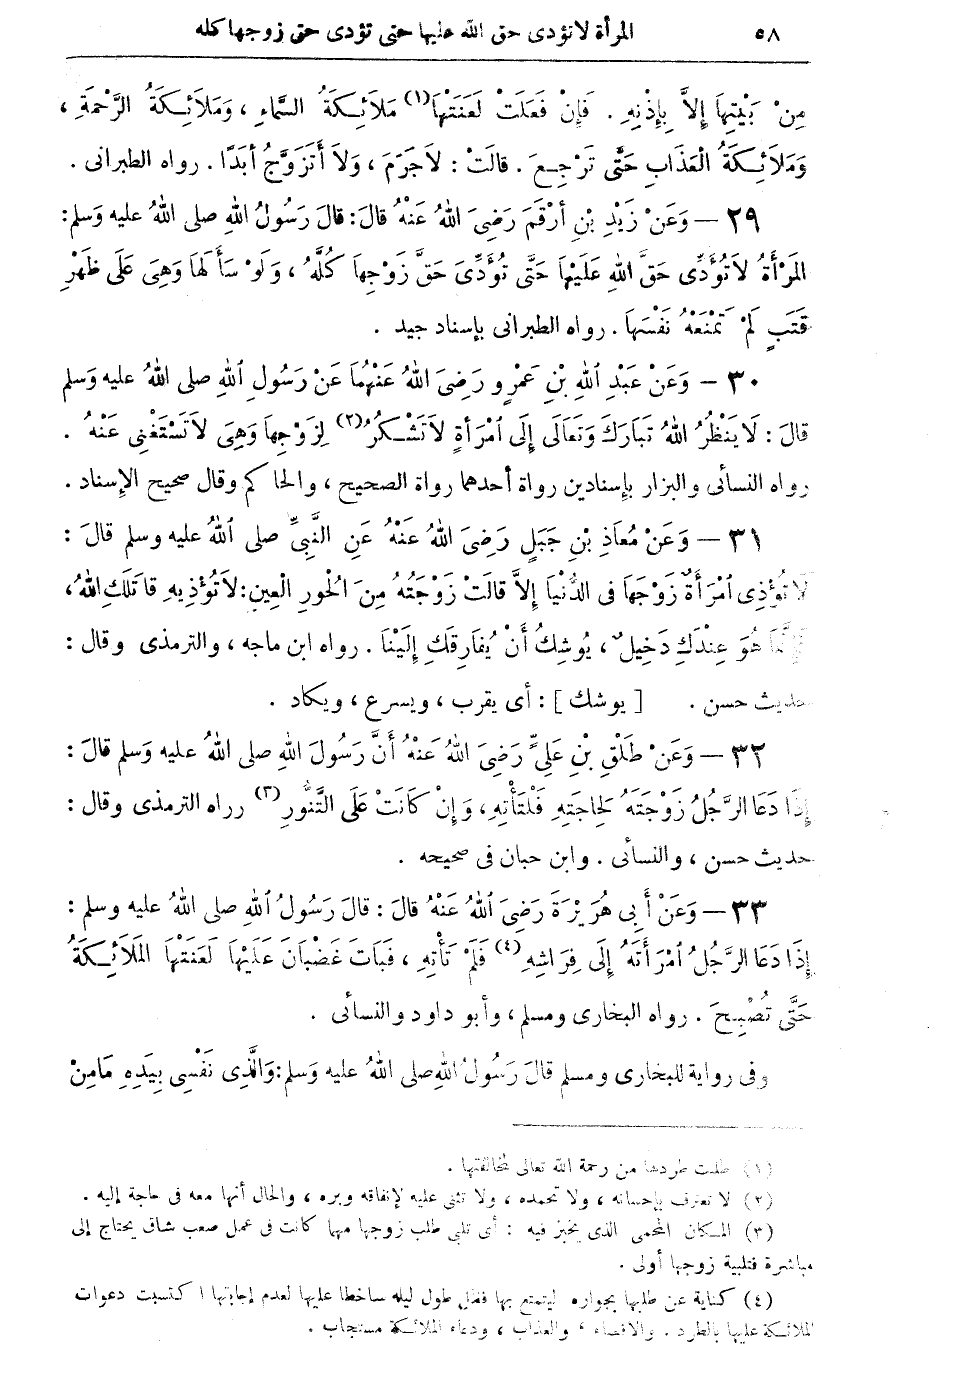 ٥٨ المرأة لا تؤدى حق الله عليها حتى تؤدى حق زوجها كله
مِنْ بَيْتِهَا إِلاَّ بِإِذْنِهِ . فَإِنْ فَعَلَتْ لَعَنَتْهَا(١) مَلاَئِكَةُ السَّمَاءِ ، وَمَلاَئِكَةُ الرَّحْمَةِ ،
وَمَلاَئِكَةُ الْعَذَابِ حَتَّى تَرْجِعَ . قالَتْ : لاَجَرَمَ ، وَلاَ أَتَزَوَّجُ أَبَدًا . رواه الطبرانى .
٢٩ — وَعَنْ زَيْدِ بْنِ أَرْقَمَ رَضِىَ اللهُ عَنْهُ قالَ : قالَ رَسُولُ اللهِ صلى اللهُ عليه وَسلم :
المَرْأَةُ لاَتُؤَدِّى حَقَّ اللهِ عَلَيْهَا حَتَّى تُؤَدِّىَ حَقَّ زَوْجِهَا كُلَّهُ ، وَلَوْ سَأَلَهَا وَهِىَ عَلَى ظَهْرِ
قَتَبٍ لَمْ تَمْنَعْهُ نَفْسَهَا . رواه الطبرانى بإسناد جيد .
٣٠ — وَعَنْ عَبْدِ اللهِ بْنِ عَمْرٍو رَضِىَ اللهُ عَنْهُمَا عَنْ رَسُولِ اللهِ صلى اللهُ عليه وَسلم
قالَ : لاَ يَنْظُرُ اللهُ تَبَارَكَ وَتَعَالَى إِلَى امْرَأَةٍ لاَتَشْكُرُ(٢) لِزَوْجِهَا وَهِىَ لاَتَسْتَغْنِى عَنْهُ .
رواه النسائى والبزار بإسنادين رواة أحدهما رواة الصحيح ، والحاكم وقال صحيح الإسناد .
٣١ — وَعَنْ مُعَاذِ بْنِ جَبَلٍ رَضِىَ اللهُ عَنْهُ عَنِ النَّبِىِّ صلى اللهُ عليه وسلم قالَ :
لاَ تُؤْذِى امْرَأَةٌ زَوْجَهَا فى الدُّنْيَا إِلاَّ قالَتْ زَوْجَتُهُ مِنَ الحُورِ الْعِينِ : لاَتُؤْذِيهِ قاتَلَكِ اللهُ ،
فَإِنَّمَا هُوَ عِنْدَكِ دَخِيلٌ ، يُوشِكُ أَنْ يُفَارِقَكِ إِلَيْنَا . رواه ابن ماجه ، والترمذى وقال :
حديث حسن . [ يوشك ] : أى يقرب ، ويسرع ، ويكاد .
٣٢ — وَعَنْ طَلْقِ بْنِ عَلِىٍّ رَضِىَ اللهُ عَنْهُ أَنَّ رَسُولَ اللهِ صلى اللهُ عليه وَسلم قالَ :
إِذَا دَعَا الرَّجُلُ زَوْجَتَهُ لِحَاجَتِهِ فَلْتَأْتِهِ ، وَإِنْ كَانَتْ عَلَى التَّنُّورِ(٣) رواه الترمذى وقال :
حديث حسن ، والنسائى . وابن حبان فى صحيحه .
٣٣ — وَعَنْ أَبِى هُرَيْرَةَ رَضِىَ اللهُ عَنْهُ قالَ : قالَ رَسُولُ اللهِ صلى اللهُ عليه وسلم :
إِذَا دَعَا الرَّجُلُ امْرَأَتَهُ إِلَى فِرَاشِهِ(٤) فَلَمْ تَأْتِهِ ، فَبَاتَ غَضْبَانَ عَلَيْهَا لَعَنَتْهَا المَلاَئِكَةُ
حَتَّى تُصْبِحَ . رواه البخارى ومسلم ، وأبو داود والنسائى .
وفى رواية للبخارى ومسلم قالَ رَسُولُ اللهِ صلى اللهُ عليه وَسلم : وَالَّذِى نَفْسِى بِيَدِهِ مَامِنْ
(١) طلبت طردها من رحمة الله تعالى لمخالفتها .
(٢) لا تعترف بإحسانه ، ولا تحمده ، ولا تثنى عليه لإنفاقه وبره ، والحال أنها معه فى حاجة إليه .
(٣) المكان المحمى الذى يخبز فيه : أى تلبى طلب زوجها مهما كانت فى عمل صعب شاق يحتاج إلى
مباشرة فتلبية زوجها أولى .
(٤) كناية عن طلبها بجواره ليتمتع بها فظل طول ليله ساخطا عليها لعدم إجابتها اكتسبت دعوات
الملائكة عليها بالطرد . والاقصاء ، والعذاب ، ودعاء الملائكة مستجاب .